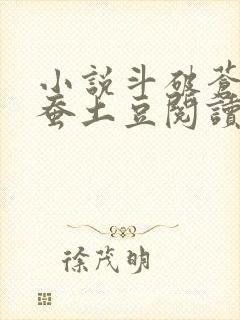 小說斗破蒼
蚕土豆閱讀
徐茂明